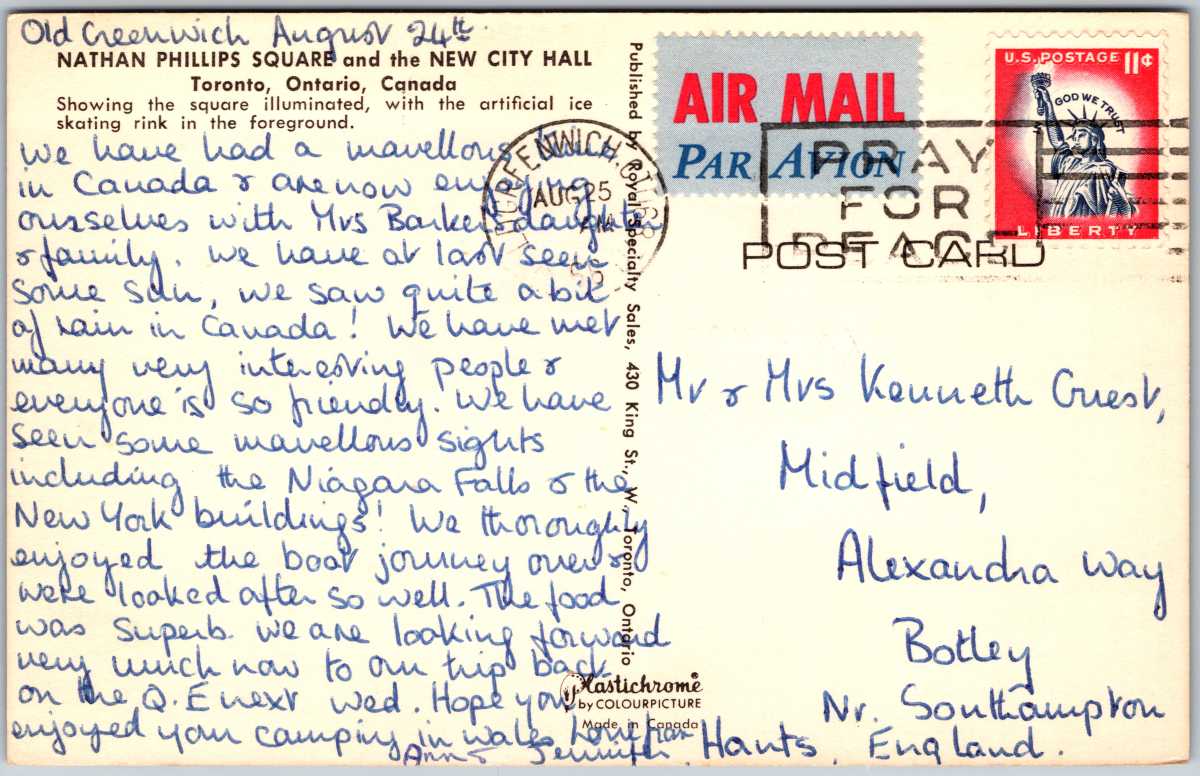 Old Greenwich August 24th.
NATHAN PHILLIPS SQUARE and the NEW CITY HALL
Toronto, Ontario, Canada
Showing the square illuminated, with the artificial ice
skating rink in the foreground.
We have had a mavellous time
in Canada & are now enjoying
ourselves with Mrs Barker's daughter
& family. We have at last seen
some sun, we saw quite a bit
of rain in Canada! We have met
many very interesting people &
everyone is so friendly. We have
seen some mavellous sights
including the Niagara Falls & the
New York buildings! We thoroughly
enjoyed the boat journey over &
were looked after so well. The food
was superb. We are looking forward
very much now to our trip back
on the Q.E next Wed. Hope you
enjoyed your camping in Wales love from
Ann & Jennifer
Published by Royal Specialty Sales, 430 King St., W., Toronto, Ontario
Plastichrome®
by COLOURPICTURE
Made in Canada
GREENWICH, CT
AUG 25
AIR MAIL
PAR AVION
PRAY
FOR
PEACE
U.S. POSTAGE 11¢
GOD WE TRUST
LIBERTY
POST CARD
Mr & Mrs Kenneth Guest,
Midfield,
Alexandra Way
Botley
Nr. Southampton
Hants, England.